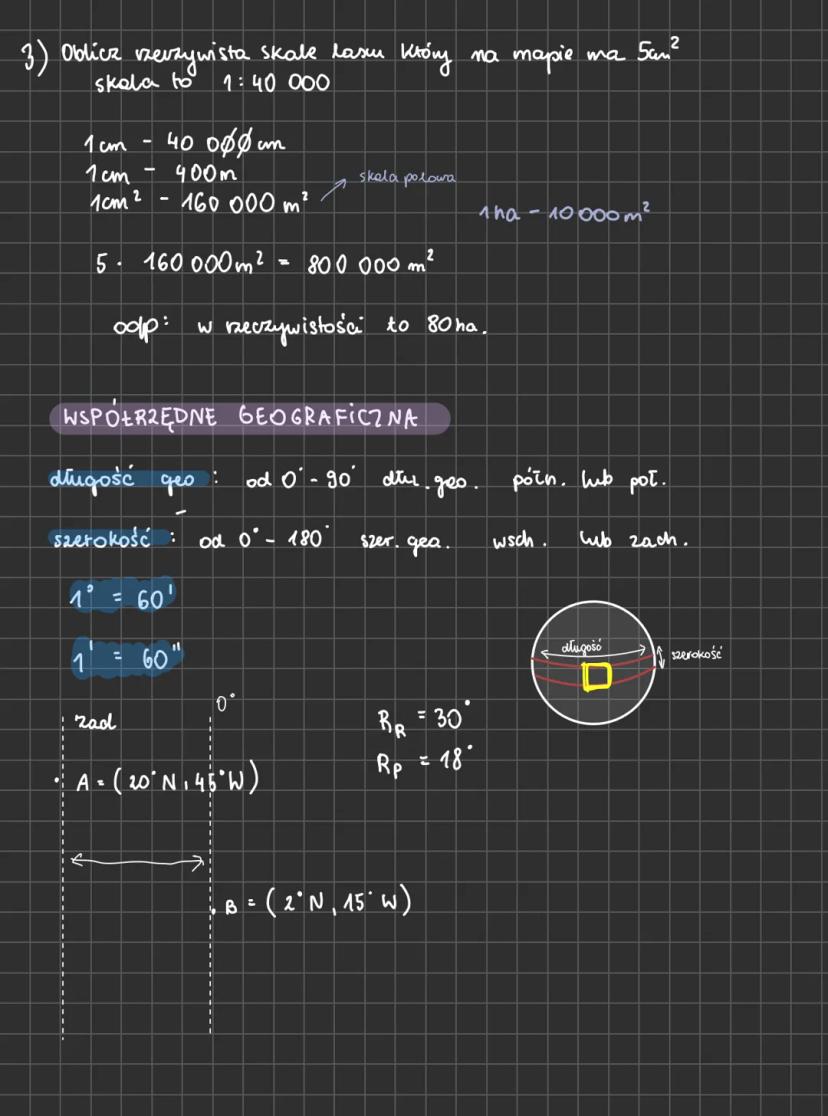 3) Oblicz rzeczywista skale lasu który na mapie ma 5cm²
skala to 1:40 000
1cm - 40 000 cm
1cm - 400m
1cm² - 160 000 m²
skala polowa
1ha - 10 000m²
5 · 160 000m² = 800 000 m²
odp: w rzeczywistości to 80ha.
WSPÓŁRZĘDNE GEOGRAFICZNA
długość geo : od 0° - 90° dłu. geo. półn. lub poł.
szerokość : od 0° - 180° szer. gea. wsch. lub zach.
1° = 60'
1' = 60"
długość
szerokość
0°
zad
R_R = 30°
R_P = 18°
A = (20°N, 45°W)
B = (2°N, 15°W)